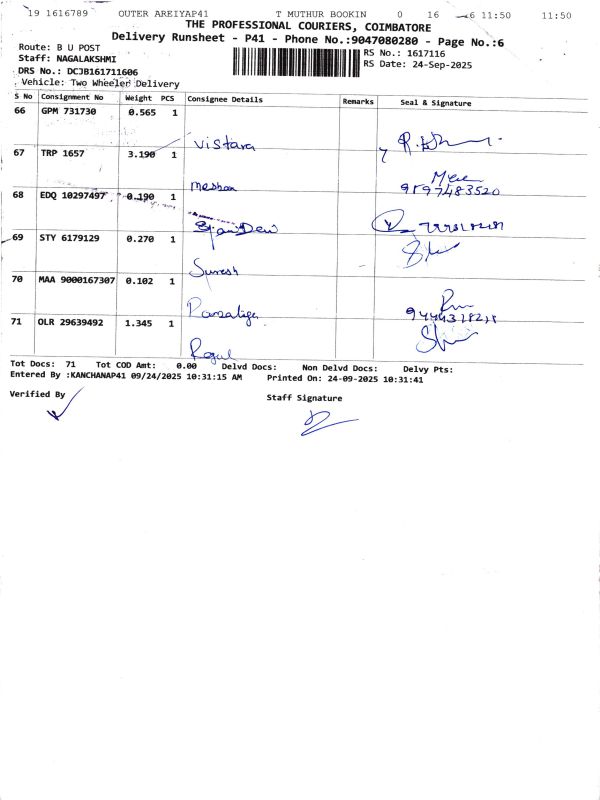 19 1616789 OUTER AREIYAP41 T MUTHUR BOOKIN 0 16 6 11:50 11:50
THE PROFESSIONAL COURIERS, COIMBATORE
Delivery Runsheet - P41 - Phone No.:9047080280 - Page No.:6
Route: B U POST
RS No.: 1617116
Staff: NAGALAKSHMI
RS Date: 24-Sep-2025
DRS No.: DCJB161711606
Vehicle: Two Wheeler Delivery
S No Consignment No Weight PCS Consignee Details Remarks Seal & Signature
66 GPM 731730 0.565 1
Vistara
67 TRP 1657 3.190 1
meshan
9597483520
68 EDQ 10297497 0.190 1
69 STY 6179129 0.270 1
Suresh
70 MAA 9000167307 0.102 1
71 OLR 29639492 1.345 1
Tot Docs: 71 Tot COD Amt: 0.00 Delvd Docs: Non Delvd Docs: Delvy Pts:
Entered By :KANCHANAP41 09/24/2025 10:31:15 AM Printed On: 24-09-2025 10:31:41
Verified By
Staff Signature